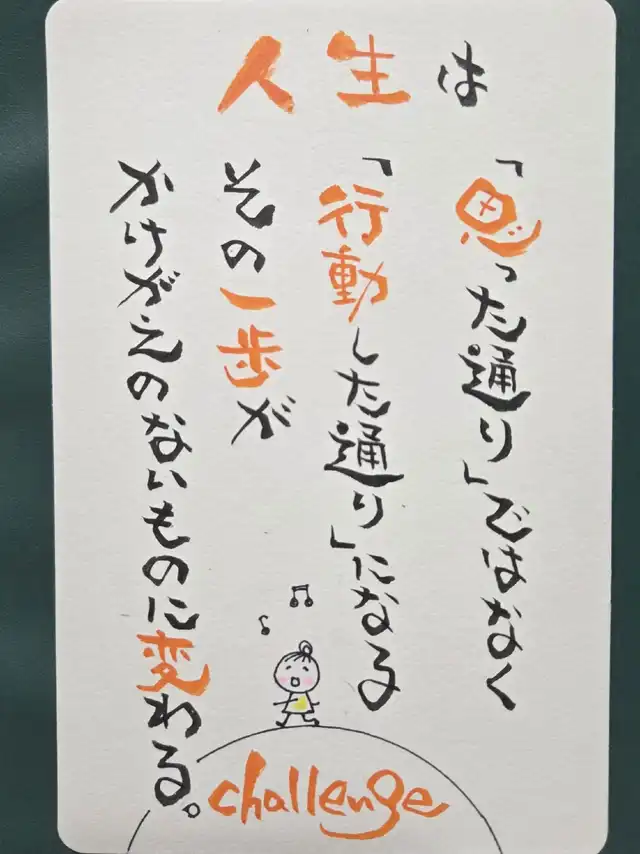 人生は
「思った通り」ではなく
「行動した通り」になる
その一歩が
かけがえのないものに変わる。
challenge